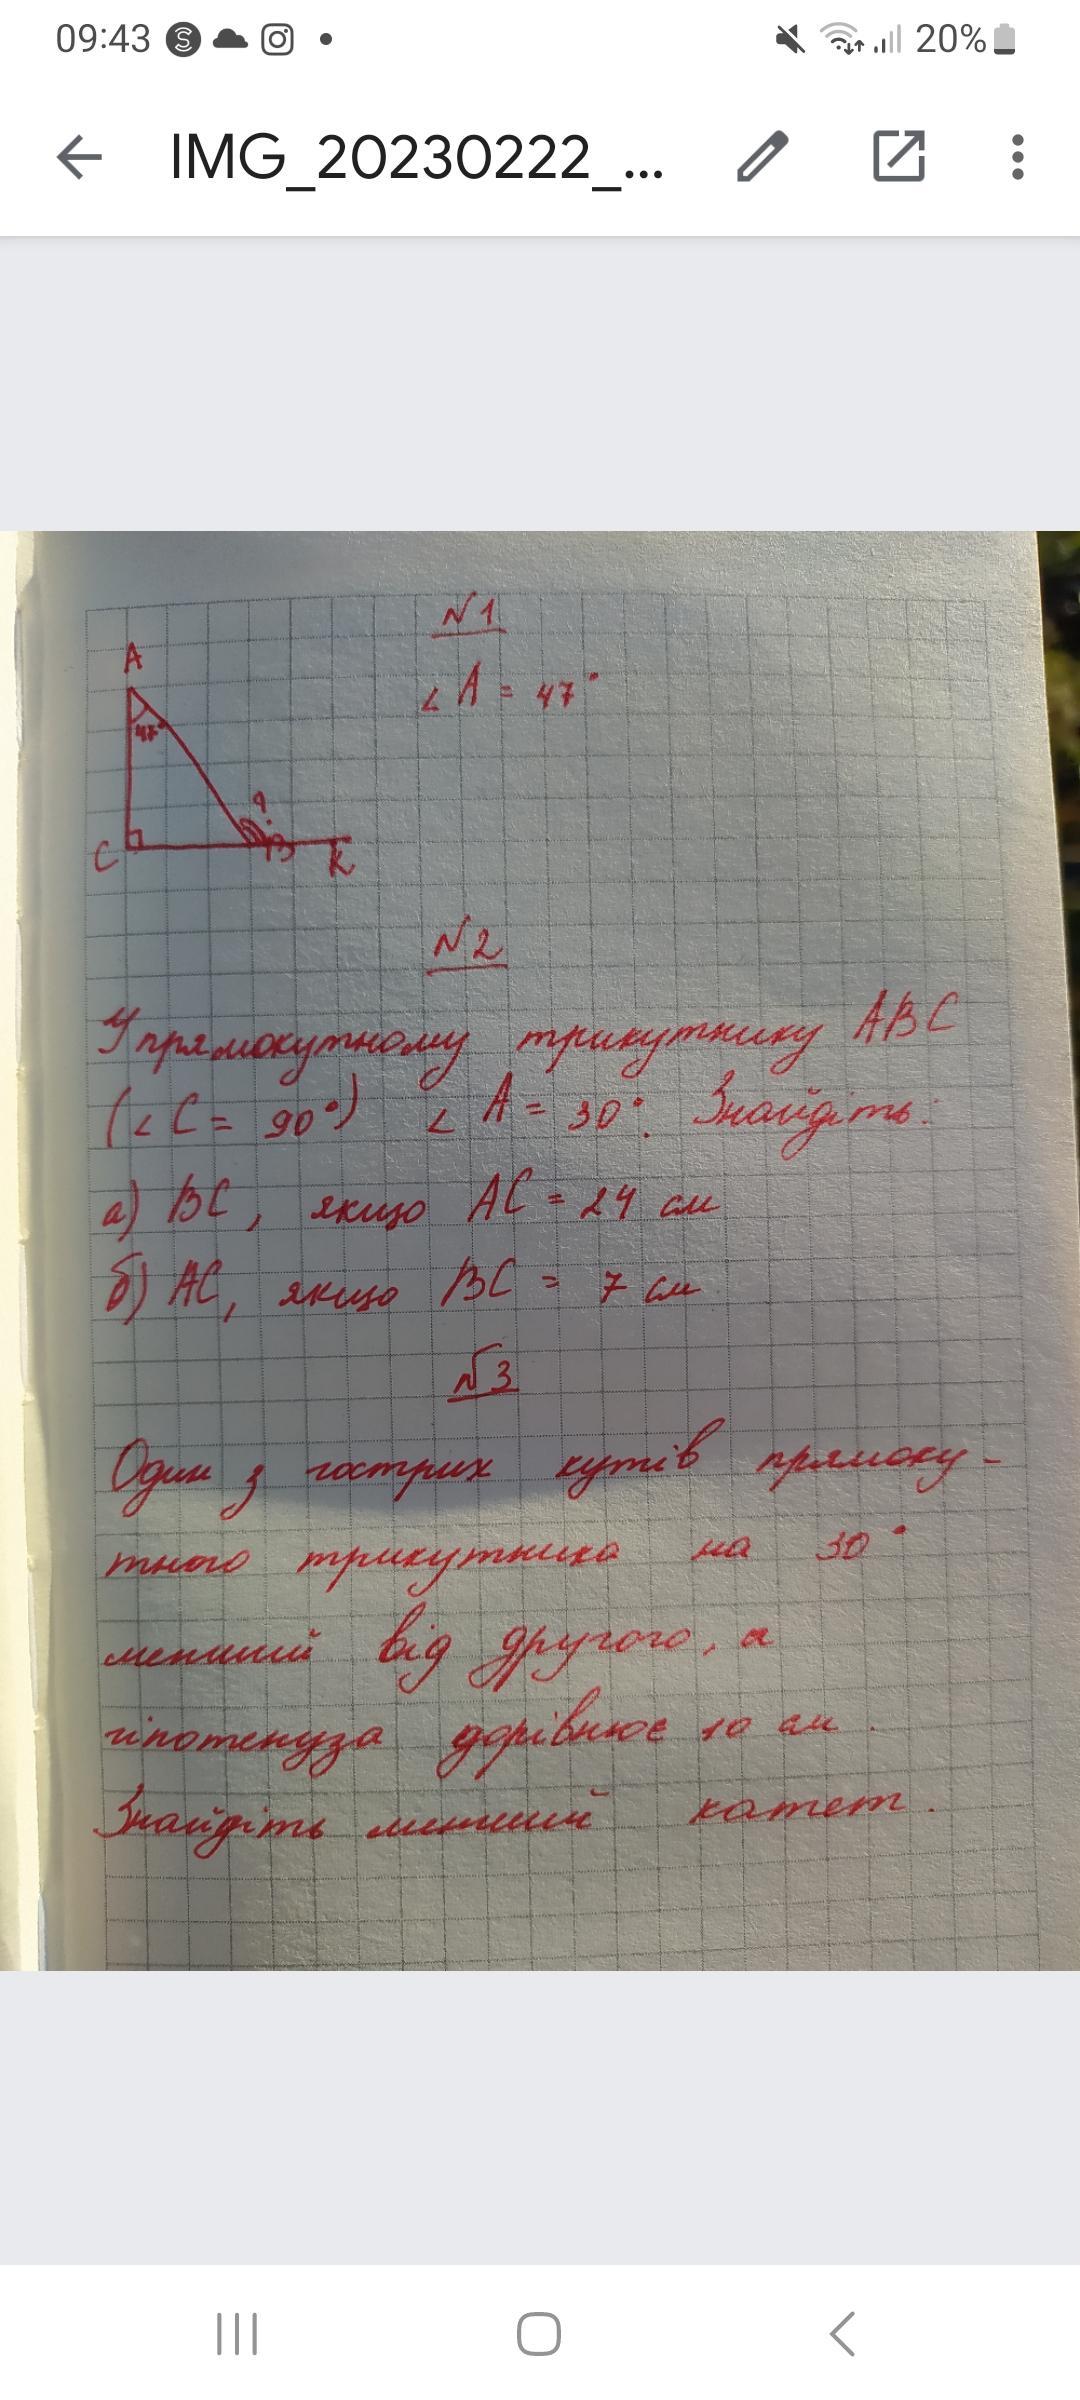 09:43
20%
IMG_20230222_...
N1
A
∠A = 47°
47°
?
C
B
K
N2
У прямокутному трикутнику ABC
(∠C = 90°) ∠A = 30°. Знайдіть:
а) BC, якщо AC = 24 см
б) AC, якщо BC = 7 см
N3
Один з гострих кутів прямоку-
тного трикутника на 30°
менший від другого, а
гіпотенуза дорівнює 10 см.
Знайдіть менший катет.